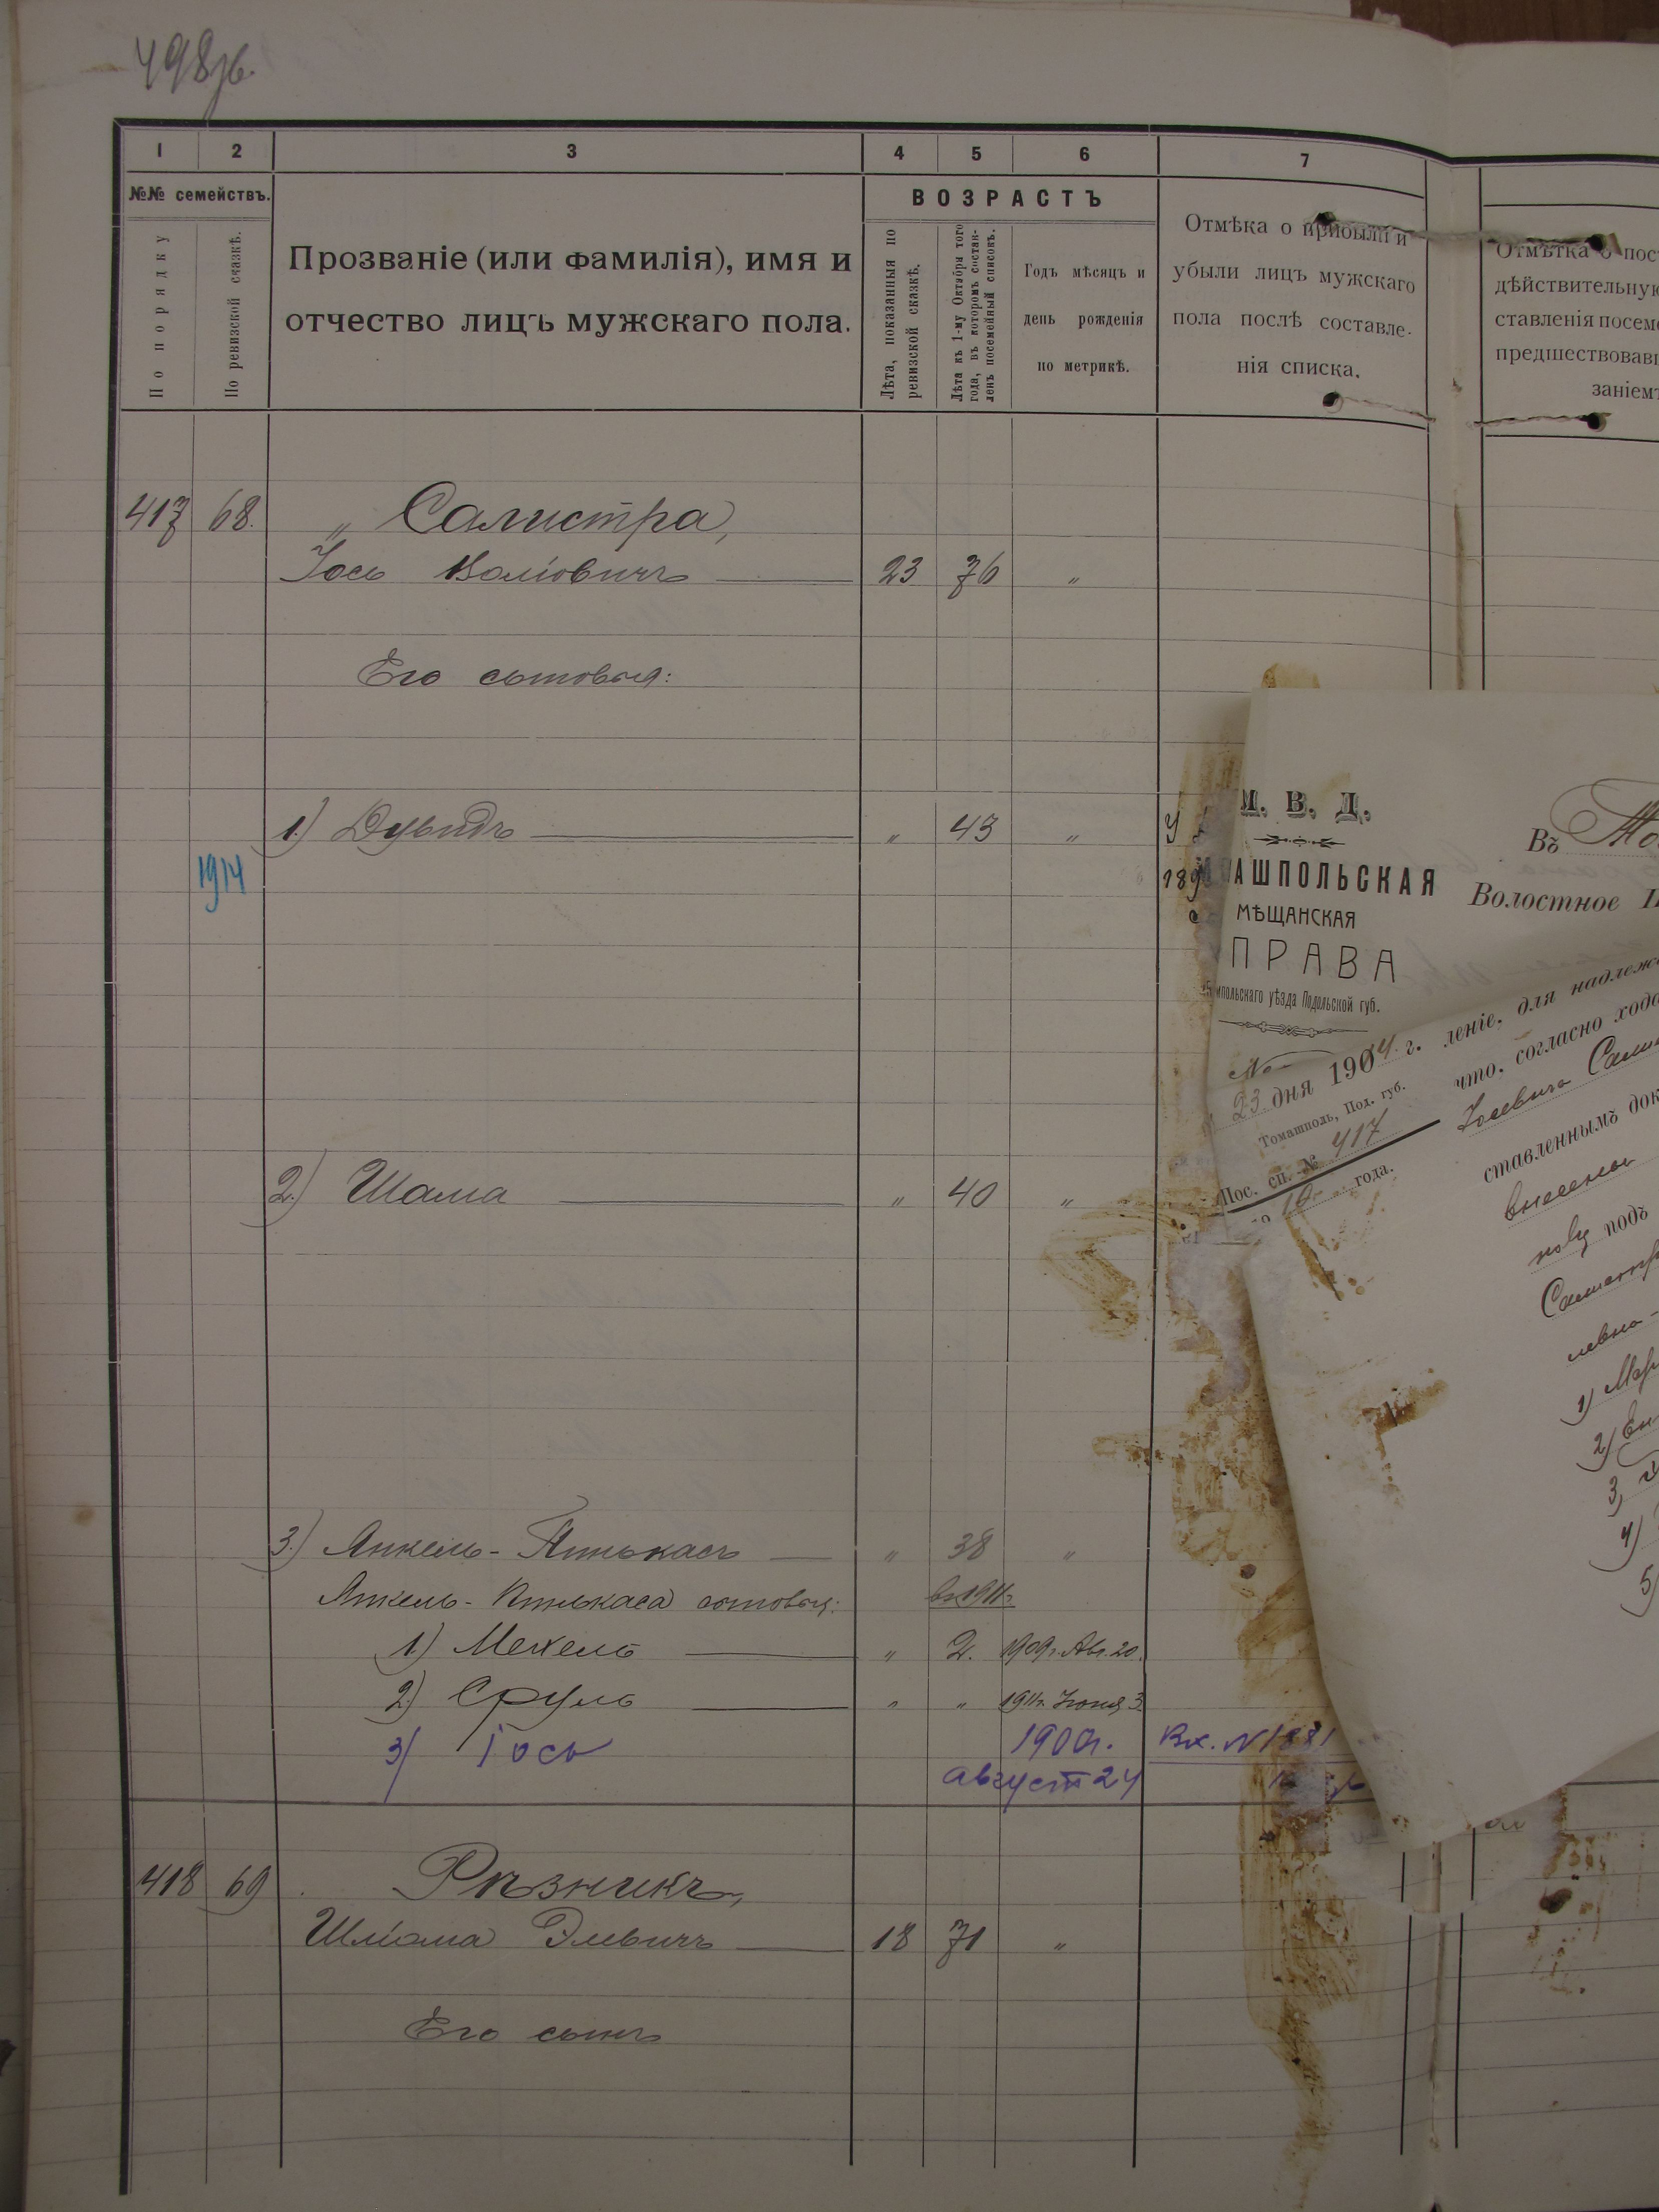 498об.
1 2 3 4 5 6 7
№№ семействъ.
По порядку
По ревизской сказкѣ.
Прозваніе (или фамилія), имя и
отчество лицъ мужскаго пола.
ВОЗРАСТЪ
Лѣта, показанныя по
ревизской сказкѣ.
Лѣта къ 1-му Октября того
года, въ которомъ состав-
ленъ посемейный списокъ.
Годъ мѣсяцъ и
день рожденія
по метрикѣ.
Отмѣка о прибыли и
убыли лицъ мужскаго
пола послѣ составле-
нія списка.
Отмѣтка о пос
дѣйствительную
ставленія посеме
предшествовавш
заніем
417 68. „ Салистра,
Іось Воліовичъ 23 76 „
Его сыновья:
1.) Дувидъ „ 43 „
1914
2.) Шама „ 40 „
3.) Янкель-Пинькасъ „ 38 „
Янкель-Пинькаса сыновья: въ 1911г.
1) Мехель „ 2. 1909г. Авг. 20.
2) Сруль „ „ 1911г. Іюня 3
3) Іось 1900г. Вх. N 1881
август 24
418 69 Рѣзникъ,
Шліома Элевичъ 18 71 „
Его сынъ
М. В. Д.
АШПОЛЬСКАЯ
МѢЩАНСКАЯ
ПРАВА
мпольскаго уѣзда Подольской губ.
№
23 дня 1904 г.
Томашполь, Под. губ.
Пос. сп. № 417
10 года.
Въ
Волостное П
леніе, для надлеж
что, согласно ход
Іосевича
ставленнымъ док
внесены
подъ
1)
2)
3,
4)
5)